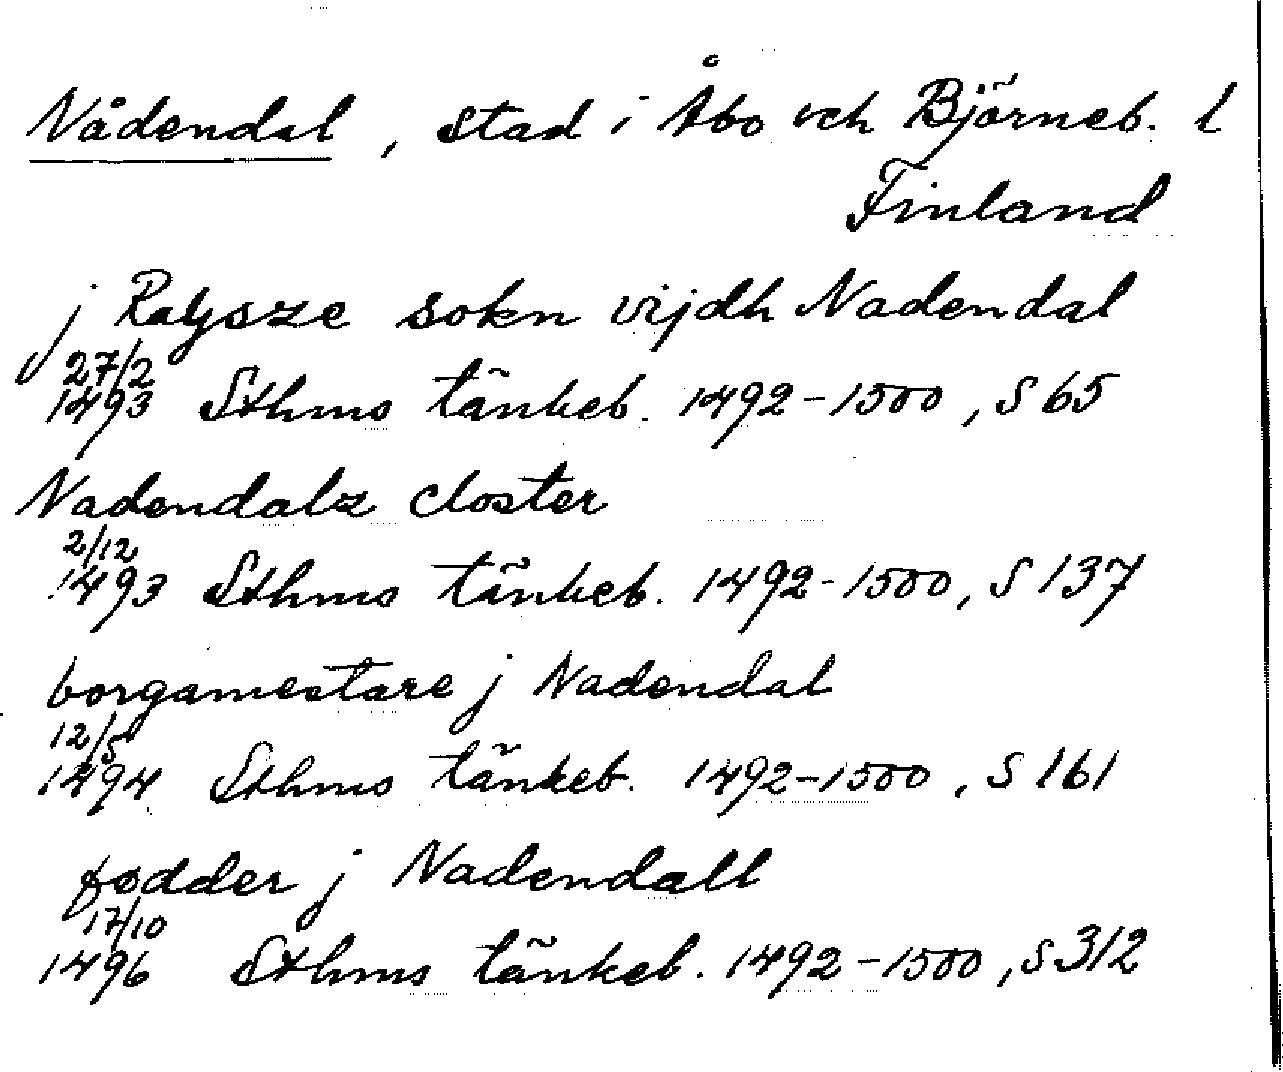 Nådendal, stad i Åbo och Björneb. l
Finland
j Raysze sokn vijdh Nadendal
27/2
1493 Sthms tänkeb. 1492-1500, S 65
Nadendalz closter
2/12
1493 Sthms tänkeb. 1492-1500, S 137
borgamestare j Nadendal
12/5
1494 Sthms tänkeb. 1492-1500, S 161
fødder j Nadendall
17/10
1496 Sthms tänkeb. 1492-1500, S 312